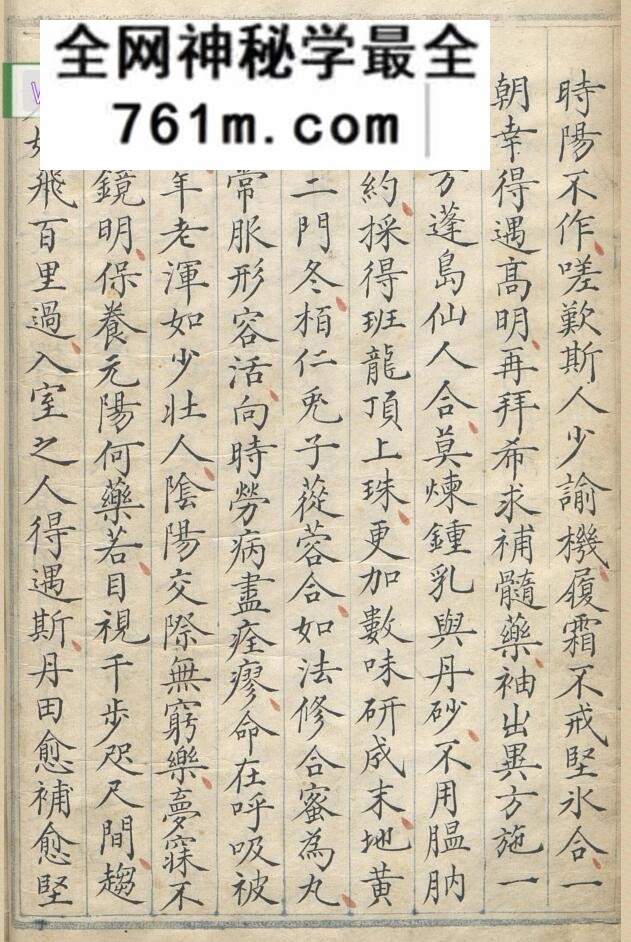 全网神秘学最全
761m.com
時陽不作嗟歎斯人少諭機履霜不戒堅氷合一
朝幸得遇高明再拜希求補髓藥袖出異方施一
方蓬島仙人合莫煉鍾乳與丹砂不用膃肭
約採得班龍頂上珠更加數味研成末地黃
二門冬栢仁兎子蓯蓉合如法修合蜜為丸
常服形容活向時勞病盡痊瘳命在呼吸被
年老渾如少壯人陰陽交際無窮樂夢寐不
鏡明保養元陽何藥若目視千步咫尺間趨
飛百里過入室之人得遇斯丹田愈補愈堅